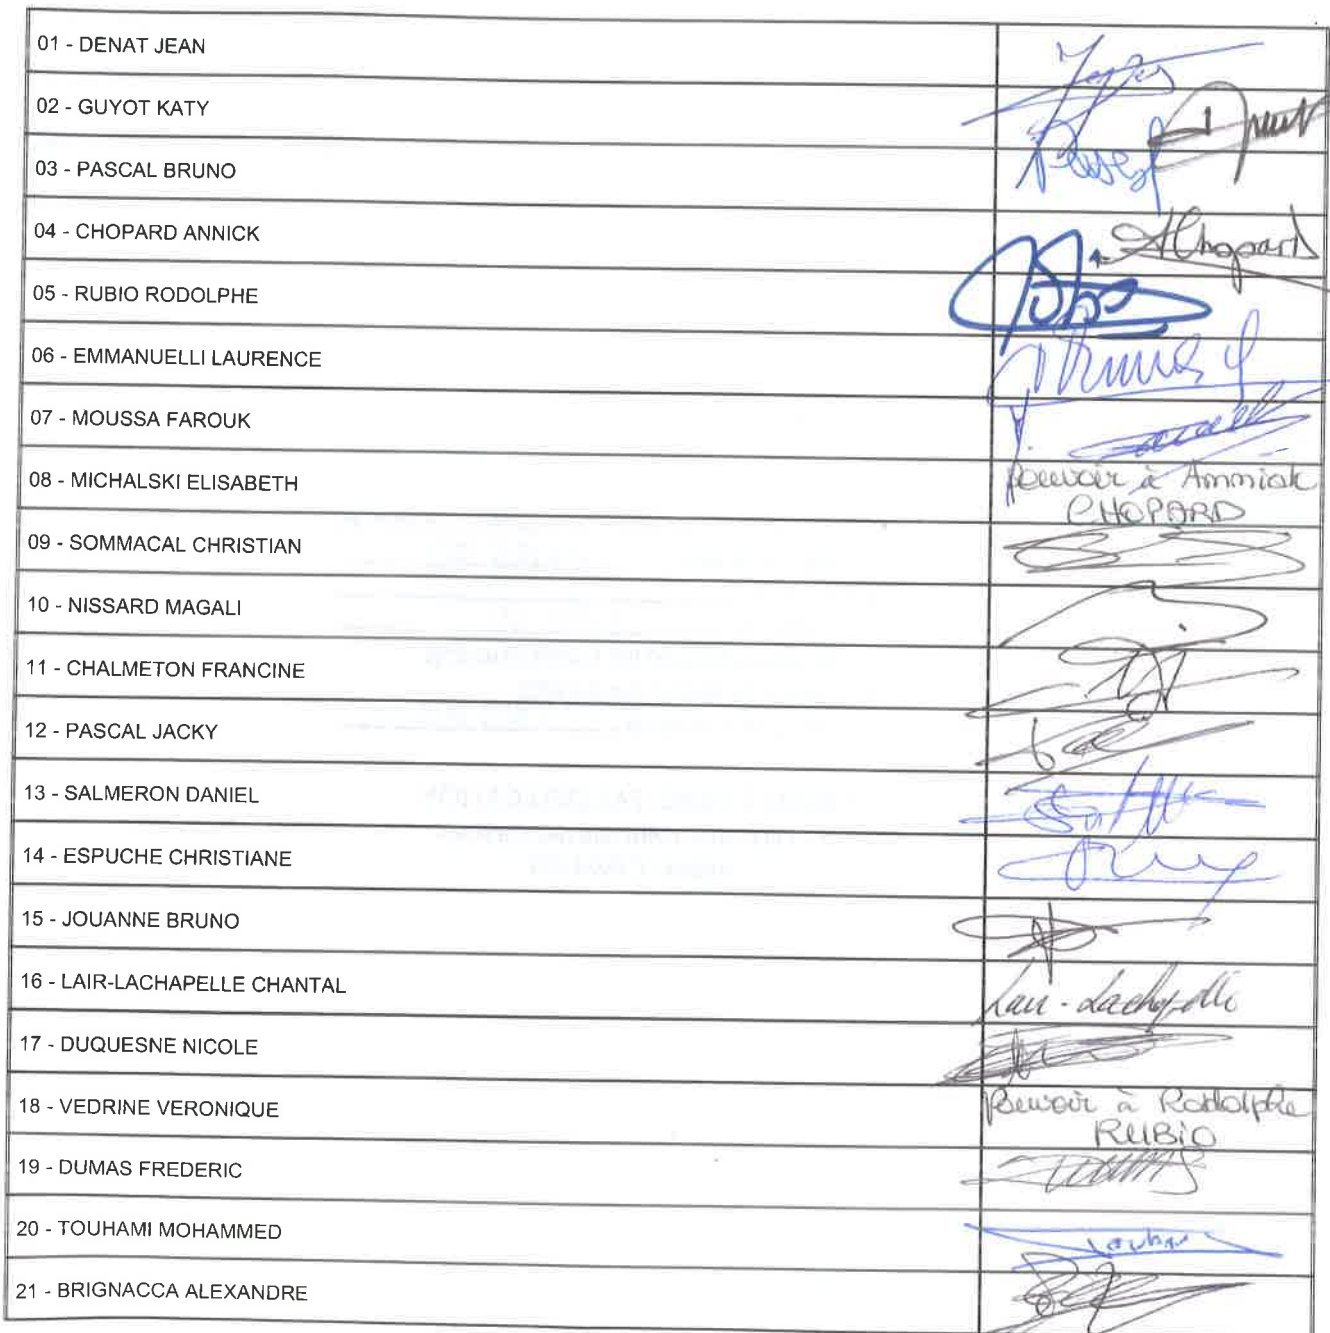 01 - DENAT JEAN
02 - GUYOT KATY
03 - PASCAL BRUNO
04 - CHOPARD ANNICK
AChopard
05 - RUBIO RODOLPHE
06 - EMMANUELLI LAURENCE
07 - MOUSSA FAROUK
08 - MICHALSKI ELISABETH
Pouvoir à Annick
CHOPARD
09 - SOMMACAL CHRISTIAN
10 - NISSARD MAGALI
11 - CHALMETON FRANCINE
12 - PASCAL JACKY
13 - SALMERON DANIEL
14 - ESPUCHE CHRISTIANE
15 - JOUANNE BRUNO
16 - LAIR-LACHAPELLE CHANTAL
Lair-Lachapelle
17 - DUQUESNE NICOLE
18 - VEDRINE VERONIQUE
Pouvoir à Rodolphe
RUBIO
19 - DUMAS FREDERIC
20 - TOUHAMI MOHAMMED
21 - BRIGNACCA ALEXANDRE